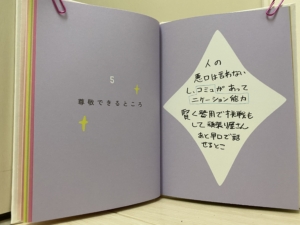 5
尊敬できるところ
人の
悪口は言わない
し、コミュがあって
ニケーション能力
賢く器用で挑戦も
して頑張り屋さん
あと早口で話
せるとこ